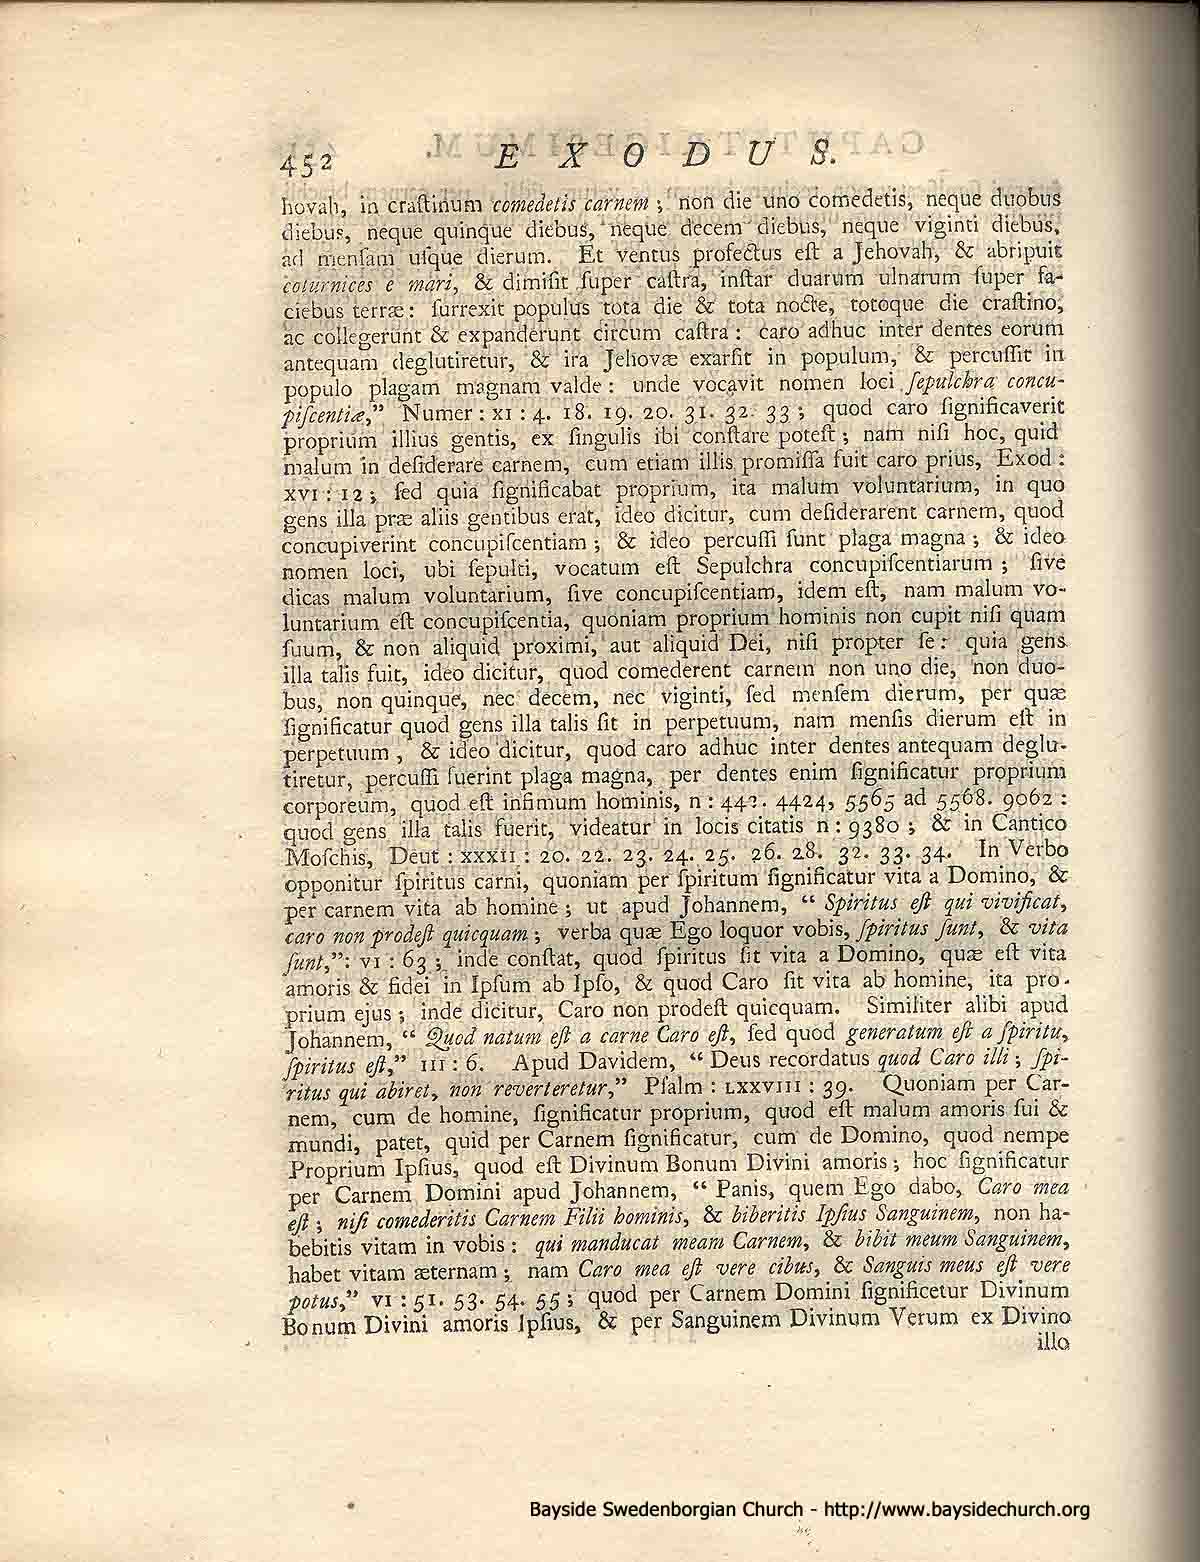 452 EXODUS.
hovah, in craſtinum comedetis carnem; non die uno comedetis, neque duobus
diebus, neque quinque diebus, neque decem diebus, neque viginti diebus,
ad menſam uſque dierum. Et ventus profectus eſt a Jehovah, & abripuit
coturnices e mari, & dimiſit ſuper caſtra, inſtar duarum ulnarum ſuper fa-
ciebus terræ: ſurrexit populus tota die & tota nocte, totoque die craſtino,
ac collegerunt & expanderunt circum caſtra: caro adhuc inter dentes eorum
antequam deglutiretur, & ira Jehovæ exarſit in populum, & percuſſit in
populo plagam magnam valde: unde vocavit nomen loci ſepulchra concu-
piſcentiæ,” Numer: XI: 4. 18. 19. 20. 31. 32. 33; quod caro ſignificaverit
proprium illius gentis, ex ſingulis ibi conſtare poteſt; nam niſi hoc, quid
malum in deſiderare carnem, cum etiam illis promiſſa fuit caro prius, Exod:
XVI: 12; ſed quia ſignificabat proprium, ita malum voluntarium, in quo
gens illa præ aliis gentibus erat, ideo dicitur, cum deſiderarent carnem, quod
concupiverint concupiſcentiam; & ideo percuſſi ſunt plaga magna; & ideo
nomen loci, ubi ſepulti, vocatum eſt Sepulchra concupiſcentiarum; ſive
dicas malum voluntarium, ſive concupiſcentiam, idem eſt, nam malum vo-
luntarium eſt concupiſcentia, quoniam proprium hominis non cupit niſi quam
ſuum, & non aliquid proximi, aut aliquid Dei, niſi propter ſe: quia gens
illa talis fuit, ideo dicitur, quod comederent carnem non uno die, non duo-
bus, non quinque, nec decem, nec viginti, ſed menſem dierum, per quæ
ſignificatur quod gens illa talis ſit in perpetuum, nam menſis dierum eſt in
perpetuum, & ideo dicitur, quod caro adhuc inter dentes antequam deglu-
tiretur, percuſſi fuerint plaga magna, per dentes enim ſignificatur proprium
corporeum, quod eſt infimum hominis, n: 4424, 5565 ad 5568. 9062:
quod gens illa talis fuerit, videatur in locis citatis n: 9380; & in Cantico
Moſchis, Deut: XXXII: 20. 22. 23. 24. 25. 26. 28. 32. 33. 34. In Verbo
opponitur ſpiritus carni, quoniam per ſpiritum ſignificatur vita a Domino, &
per carnem vita ab homine; ut apud Johannem, “Spiritus eſt qui vivificat,
caro non prodeſt quicquam; verba quæ Ego loquor vobis, ſpiritus ſunt, & vita
ſunt,”: VI: 63; inde conſtat, quod ſpiritus ſit vita a Domino, quæ eſt vita
amoris & fidei in Ipſum ab Ipſo, & quod Caro ſit vita ab homine, ita pro-
prium ejus; inde dicitur, Caro non prodeſt quicquam. Similiter alibi apud
Johannem, “Quod natum eſt a carne Caro eſt, ſed quod generatum eſt a ſpiritu,
ſpiritus eſt,” III: 6. Apud Davidem, “Deus recordatus quod Caro illi; ſpi-
ritus qui abiret, non reverteretur,” Pſalm: LXXVIII: 39. Quoniam per Car-
nem, cum de homine, ſignificatur proprium, quod eſt malum amoris ſui &
mundi, patet, quid per Carnem ſignificatur, cum de Domino, quod nempe
Proprium Ipſius, quod eſt Divinum Bonum Divini amoris; hoc ſignificatur
per Carnem Domini apud Johannem, “Panis, quem Ego dabo, Caro mea
eſt; niſi comederitis Carnem Filii hominis, & biberitis Ipſius Sanguinem, non ha-
bebitis vitam in vobis: qui manducat meam Carnem, & bibit meum Sanguinem,
habet vitam æternam; nam Caro mea eſt vere cibus, & Sanguis meus eſt vere
potus,” VI: 51. 53. 54. 55; quod per Carnem Domini ſignificetur Divinum
Bonum Divini amoris Ipſius, & per Sanguinem Divinum Verum ex Divino
illo
Bayside Swedenborgian Church - http://www.baysidechurch.org